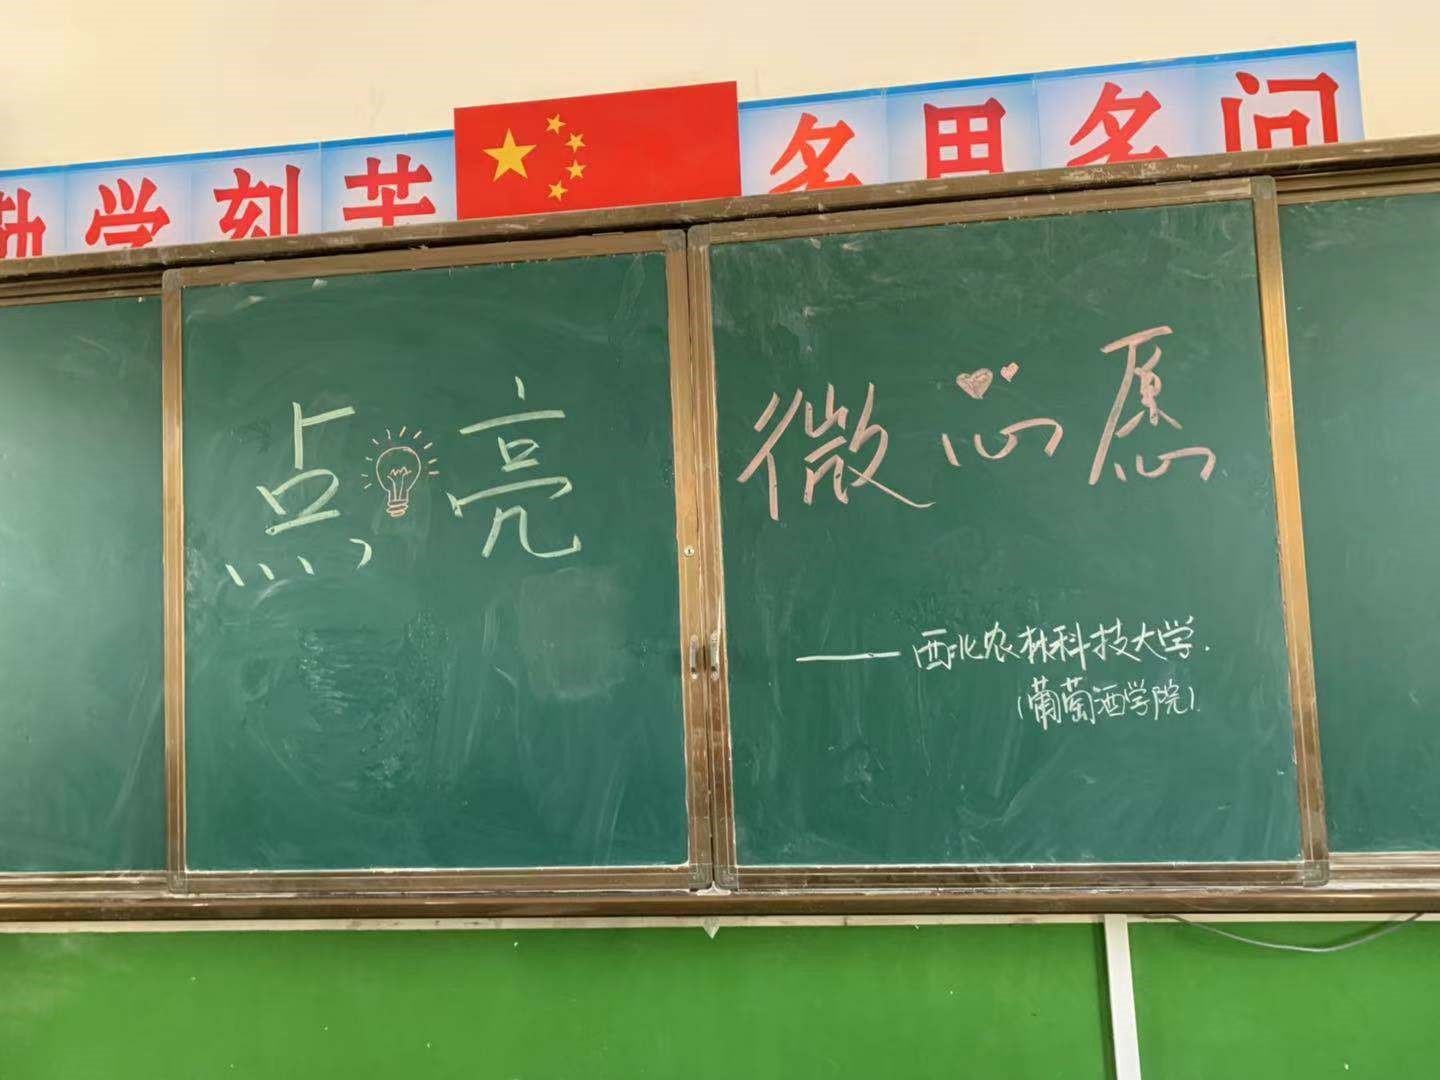 勤学刻苦 多思多问
点亮 微心愿
——西北农林科技大学.
(葡萄酒学院)